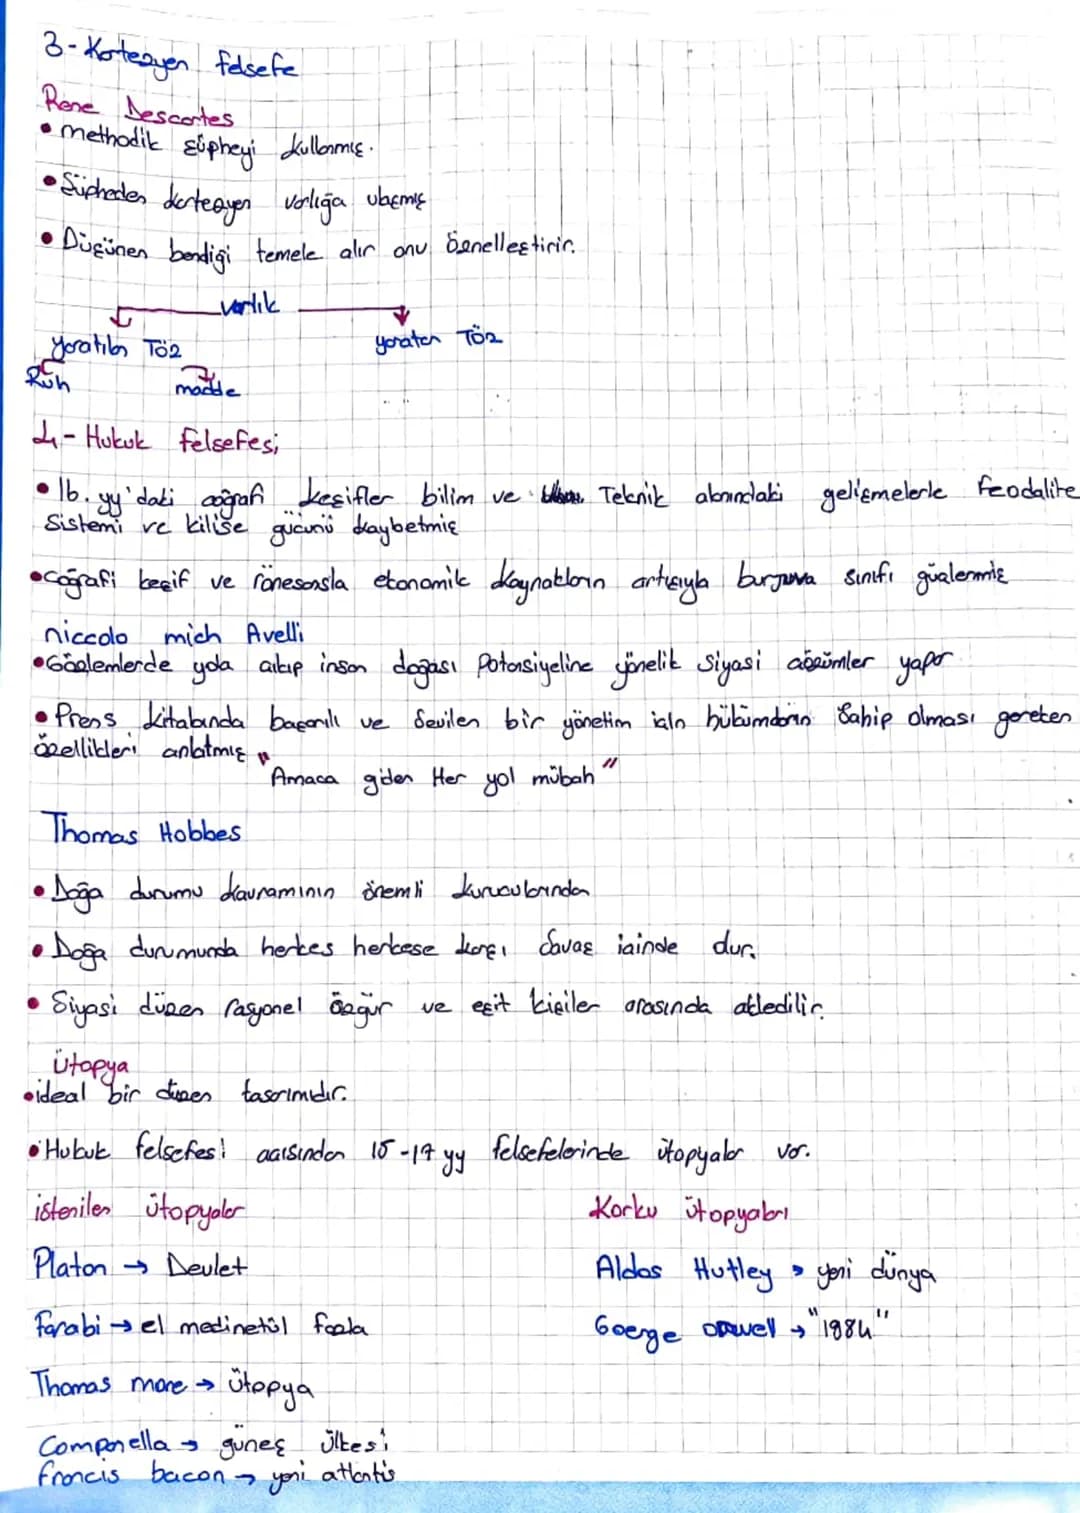 3- Kartezyen felsefe
Rene Descartes
• methodik şüpheyi kullanmış.
• Şüpheden kartezyen varlığa ulaşmış
• Düşünen bendiği temele alır onu özenelleştirir.
varlık
yaratılan Töz yaratan Töz
Ruh madde
4- Hukuk felsefesi
• 16. yy'daki coğrafi keşifler bilim ve Teknik alanındaki gelişmelerle feodalite
sistemi ve kilise gücünü kaybetmiş
• Coğrafi keşif ve rönesansla ekonomik kaynakların artışıyla burjuva sınıfı güçlenmiş
niccolo mich Avelli
• Gözlemlerde yola çıkıp insan doğası Potansiyeline yönelik siyasi çözümler yapar
• Prens kitabında başarılı ve sevilen bir yönetim için hükümdarın sahip olması gereken
özellikleri anlatmış
"Amaca giden Her yol mübah"
Thomas Hobbes
• Doğa durumu kavramının önemli kurucularından
• Doğa durumunda herkes herkese karşı savaş içinde dur.
• Siyasi düzen rasyonel özgür ve eşit kişiler arasında akledilir.
Ütopya
• ideal bir düzen tasarımıdır.
• Hukuk felsefesi açısından 15-17 yy felsefelerinde ütopyalar var.
istenilen ütopyalar Korku ütopyaları
Platon → Devlet Aldos Hutley → yeni dünya
Farabi → el medinetül fazla Goerge orwell → "1984"
Thomas more → ütopya
Companella → güneş ülkesi
francis bacon → yeni atlantis